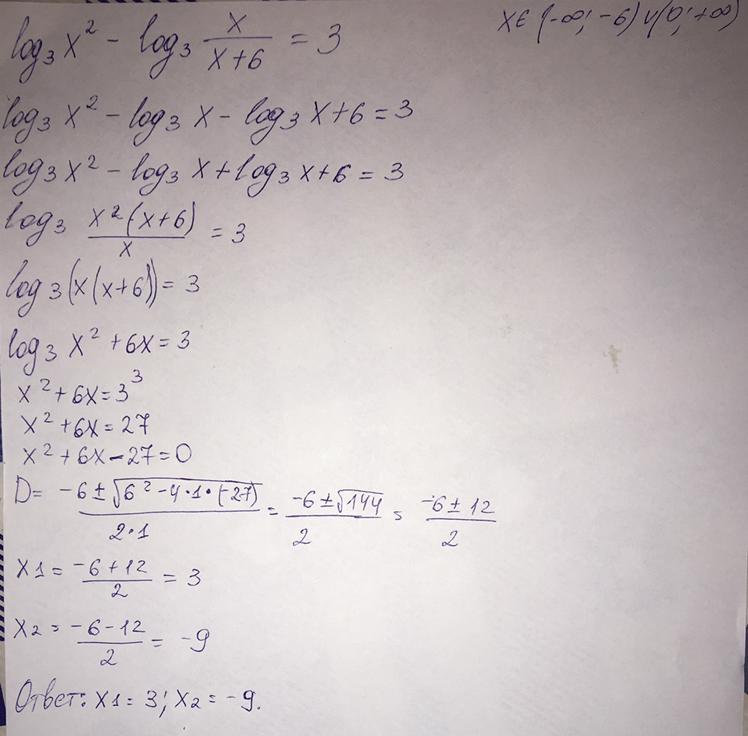 log₃ x² - log₃ x/(x+6) = 3
x∈(-∞; -6)∪(0; +∞)
log₃ x² - log₃ x - log₃ x+6 = 3
log₃ x² - log₃ x + log₃ x+6 = 3
log₃ x²(x+6)/x = 3
log₃(x(x+6)) = 3
log₃ x² + 6x = 3
x² + 6x = 3³
x² + 6x = 27
x² + 6x - 27 = 0
D = (-6 ± √(6² - 4·1·(-27)))/(2·1) = (-6 ± √144)/2 = (-6 ± 12)/2
x1 = (-6+12)/2 = 3
x2 = (-6-12)/2 = -9
Ответ: x1 = 3; x2 = -9.